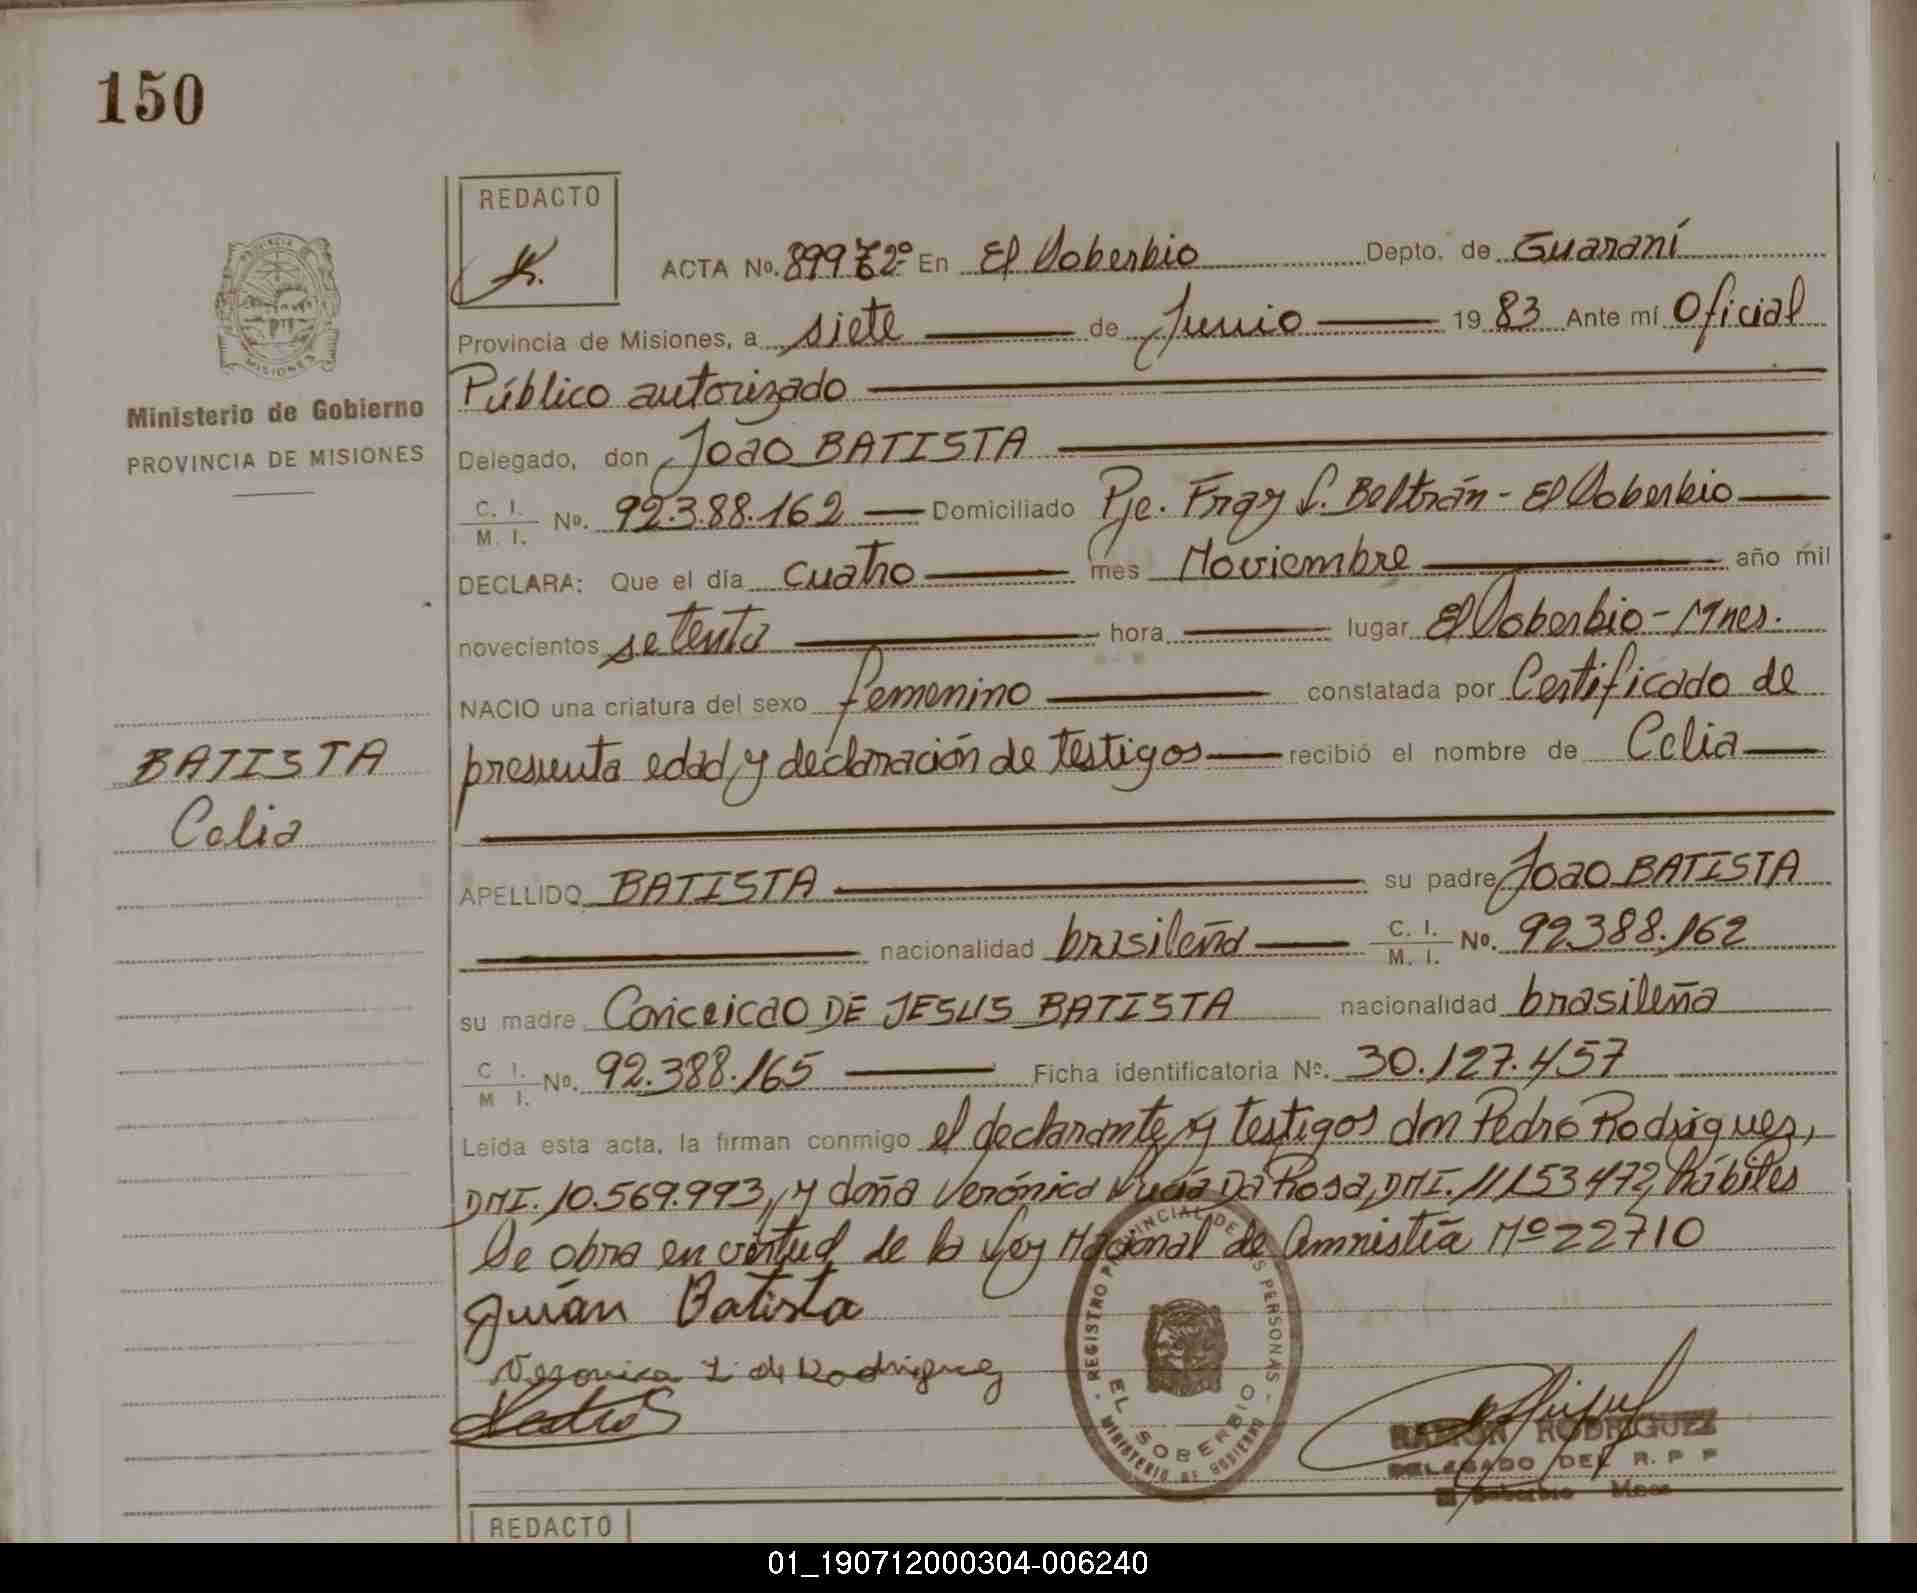 150
REDACTO
ACTA No. 899 T2º En El Soberbio Depto. de Guaraní
Provincia de Misiones, a siete de Junio 19 83 Ante mí Oficial
Ministerio de Gobierno
PROVINCIA DE MISIONES
Público autorizado
Delegado, don Joao BATISTA
C. I. / M. I. No. 92.388.162 Domiciliado Pje. Fray L. Beltrán - El Soberbio
DECLARA: Que el día cuatro mes Noviembre año mil
novecientos setenta hora lugar El Soberbio - Mnes.
NACIO una criatura del sexo femenino constatada por Certificado de
presunta edad y declaración de testigos recibió el nombre de Celia
BATISTA
Celia
APELLIDO BATISTA su padre Joao BATISTA
nacionalidad brasileña C. I. / M. I. No. 92.388.162
su madre Conceicao DE JESUS BATISTA nacionalidad brasileña
C I. / M I. No. 92.388.165 Ficha identificatoria Nº. 30.127.457
Leída esta acta, la firman conmigo el declarante y testigos don Pedro Rodriguez,
DNI. 10.569.993, y doña Verónica Lucía Da Rosa, DNI. 11153472, hábiles
Se obra en virtud de la Ley Nacional de Amnistía Nº 22710
Juán Batista
Veronica L. de Rodriguez
REGISTRO PROVINCIAL DE LAS PERSONAS
EL SOBERBIO
MINISTERIO DE GOBIERNO
RAMON RODRIGUEZ
DELEGADO DEL R. P P
El Soberbio Mnes
REDACTO
01_190712000304-006240